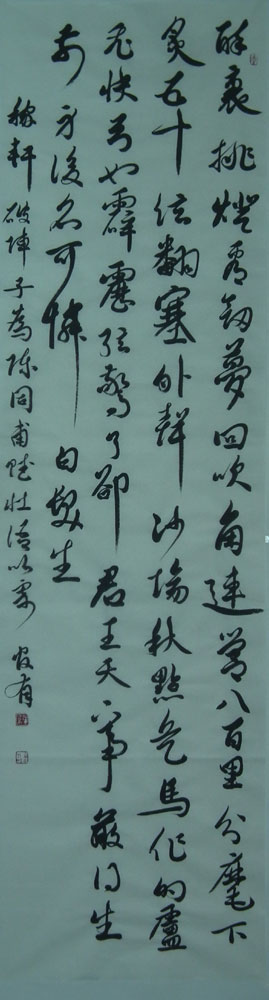 醉裏挑燈看劍夢回吹角連營八百里分麾下
炙五十弦翻塞外聲沙場秋點兵馬作的盧
飛快弓如霹靂弦驚了卻君王天下事贏得生
前身後名可憐白髮生
稼軒破陣子為陳同甫賦壯語以寄